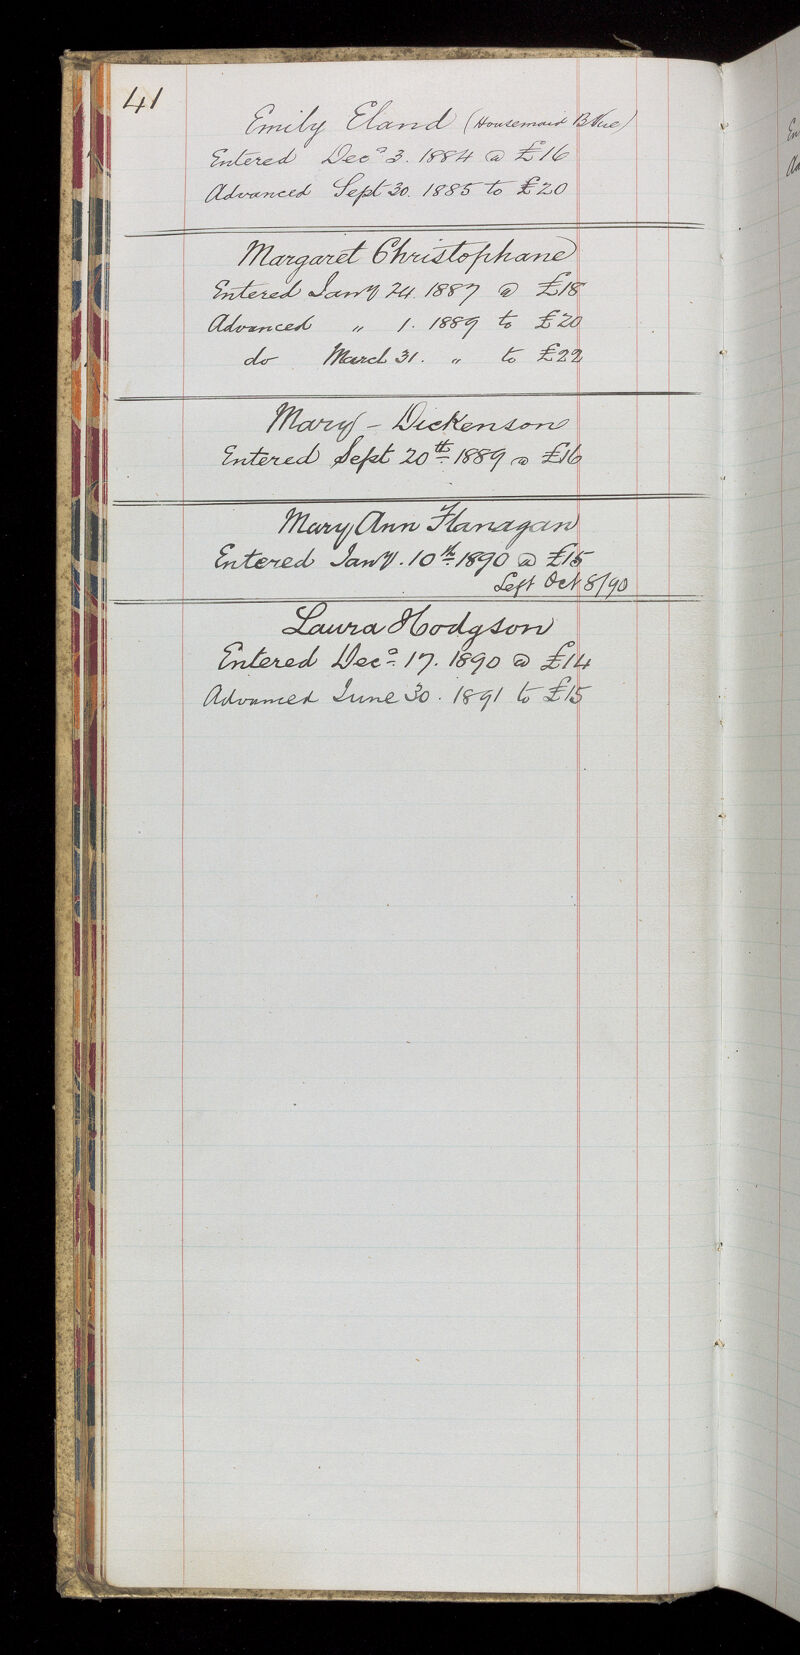 41
Emily Eland (Housemaid B Vue)
Entered Decr 3. 1884 @ £16
Advanced Sept 30. 1885 to £20
Margaret Christophane
Entered Jany 24. 1887 @ £18
Advanced " 1. 1889 to £20
do March 31. " to £22
Mary - Dickenson
Entered Sept 20th 1889 @ £16
Mary Ann Flanagan
Entered Jany. 10th 1890 @ £15
Left Oct 8/90
Laura Hodgson
Entered Decr 17. 1890 @ £14
Advanced June 30. 1891 to £15